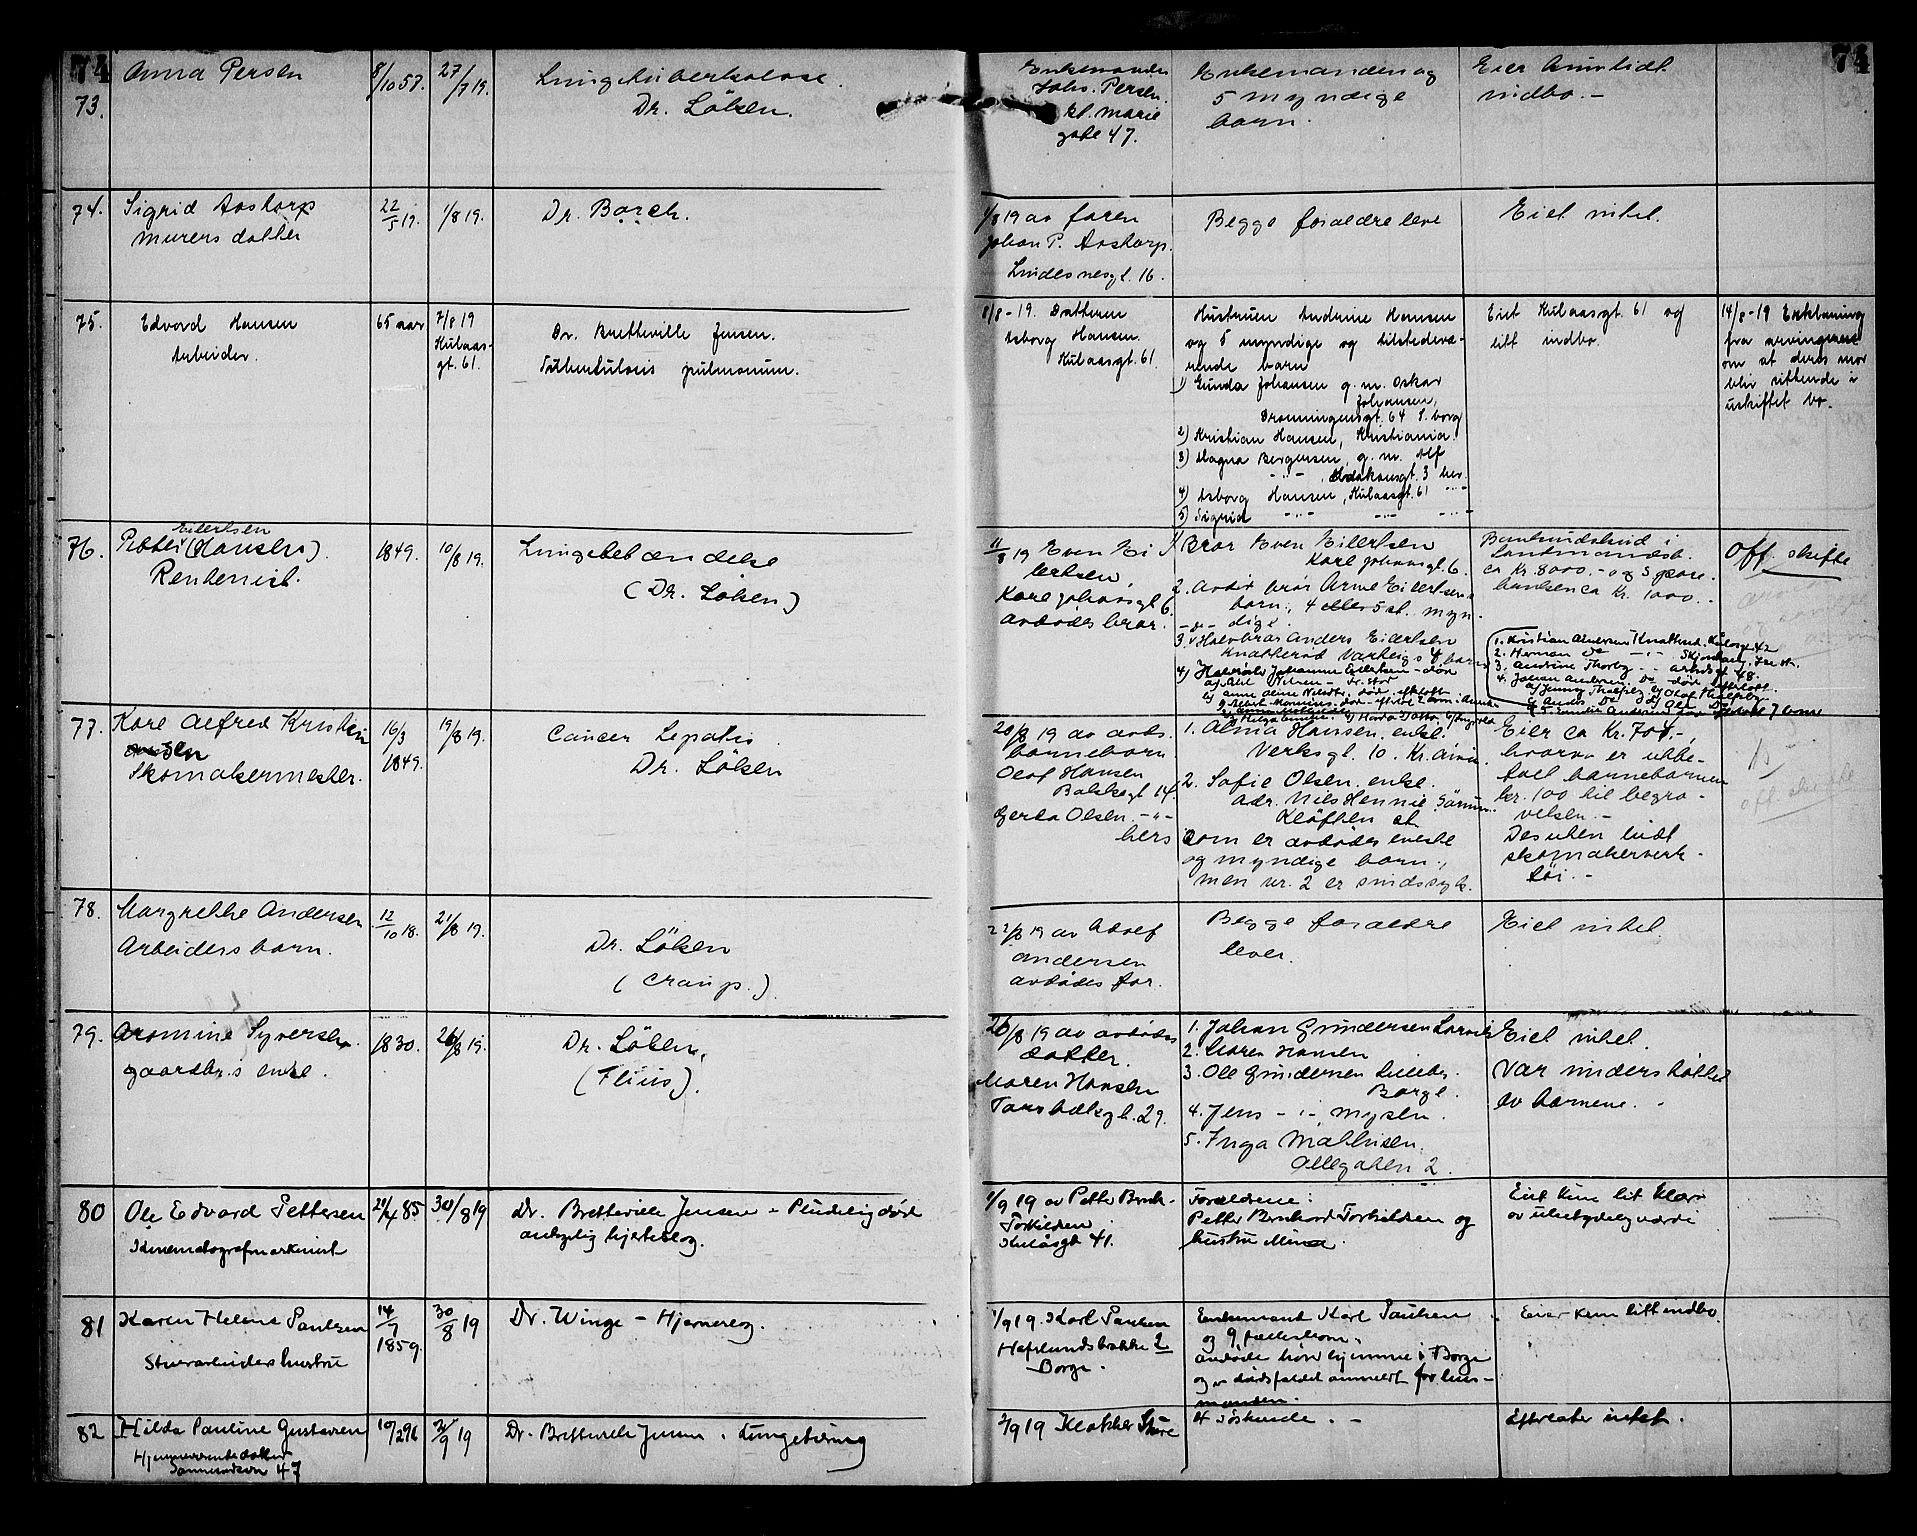 74 74
73. Anna Persen 8/10 57. 27/7 19. Lungetuberkolose.
Dr. Löken.
Enkemanden
Johs. Persen.
kl. Marie
gate 47.
Enkemanden og
5 myndige
barn.
Eier kun lidt
indbo. -
74. Sigrid Aastorp
Murers datter
22/5 19. 1/8 19. Dr. Borch.
1/8 19 av faren
Johan P. Aastorp.
Lindesnesgt. 16.
Begge foraldre leve
Eiet intet.
75. Edvard Hansen
Arbeider.
65 aar
7/8 19
Kulaas-
gt. 61.
Dr. Bretteville Jensen.
Tuberkulosis pulmonum.
8/8 - 19. Datteren
Asborg Hansen
Kulaasgt. 61
Hustruen Andrine Hansen
og 5 myndige og tilstedevæ-
rende barn
1) Gunda Johansen g. m. Oskar
Johansen,
Dronningensgt. 64 S.borg
2) Kristian Hansen, Kristiania.
3) Magna Bergersen g. m. Alf
-"- , Haakonsgt. 3 her
4) Asborg Hansen, Kulaasgt. 61 -"-
5) Sigrid -"- -"- -"-
Eiet Kulaasgt. 61 og
litt indbo.
14/8 - 19 Erklæring
fra arvingerne
om at deres mor
blir sittende i
uskiftet bo.
76. Petter Eilertsen (Hansen).
Rentenist.
1849. 10/8 19. Lungebetændelse
(Dr. Löken)
11/8 19 Even Ei
lertsen,
Karl Johansgt 6.
avdødes bror.
1 Bror Even Eilertsen
Karl Johansgt. 6.
2. Avdøde bror Arne Eilertsens
barn, 4 eller 5 st. myn-
dige.
3. Halvbror Anders Eilertsen
Knatterød Varteig, 4 barn
4) Halvsøster Johanne Eilertsen - død
Bankindskud i
Landmandsb.
ca Kr. 8000. - og 3 gjære.
ca Kr. 1000. -
1. Kristian Andersen Knatterød
2. Herman Do
3. Andrine Thorby
4. Johan Andersen Do død
Off. skifte
77. Karl Alfred Kristian
sen
Skomakermester.
16/3
1849.
19/8 19. Cancer hepatis
Dr. Löken
20/8 19 av avd.
barnebarn
Olaf Hansen
Gerda Olsen. -"-
hers
1. Alma Hansen, enke.
Verksgt. 10. Kr.ania.
2. Sofie Olsen, enke.
adr. Nils Hennie Sörum.
Kløften st
som er avdødes eneste
og myndige barn,
men nr. 2 er sindssyk.
Eier ca Kr. 700.-,
hvorav er utbe-
talt barnebarnen
kr. 100 til begra-
velsen. -
Desuten lidt
skomakerverk-
tøi. -
off. skifte
78. Margrethe Andersen
Arbeidersbarn.
12/10 18. 21/8 19. Dr. Löken
(Croup.)
22/8 19 av Adolf
Andersen
avdødes far.
Begge foraldre
lever.
Eiet intet
79. Aromine Syversen
gaardbr.s enke.
1830. 26/8 19. Dr. Löken,
(Ilius).
26/8 19 av avdødes
datter
Maren Hansen
Tarsbækgt. 29.
1. Johan Gundersen Larvik
2. Maren Hansen
3. Ole Gundersen Lilleby
Borge.
4. Jens -"- Mysen.
5. Inga Mathisen.
Allegaten 2.
Eiet intet.
Var understöttet
av barnene. -
80 Ole Edvard Pettersen
Kinematografmaskinist
21/4 85 30/8 19 Dr. Bretteville Jensen - Pludselig död
antagelig hjerteslag.
1/9 19 av Petter Bernh.
Torkildsen
Kulåsgt 41.
Forældrene:
Petter Bernhard Torkildsen og
hustru Mina.
Eiet kun lit klær
av ubetydelig værdi
81 Karen Helene Paulsen
Stuerarbeiders hustru
14/7
1859.
30/8 19 Dr. Winge - Hjerneslag.
1/9 19. Karl Paulsen
Hafslundsbakke 2
Borge.
Enkemand Karl Paulsen
og 9 fællesbarn.
avdöde hörer hjemme i Borge
og er dödsfaldet anmeldt for lens-
manden
Eier kun litt indbo
82 Hilda Pauline Gustavsen
Hjemmeværende datter
47
10/2 96 2/9 19 Dr. Bretteville Jensen. Lungetæring
2/9 19 Klokker Sture
4 söskende. -
Efterlater intet.